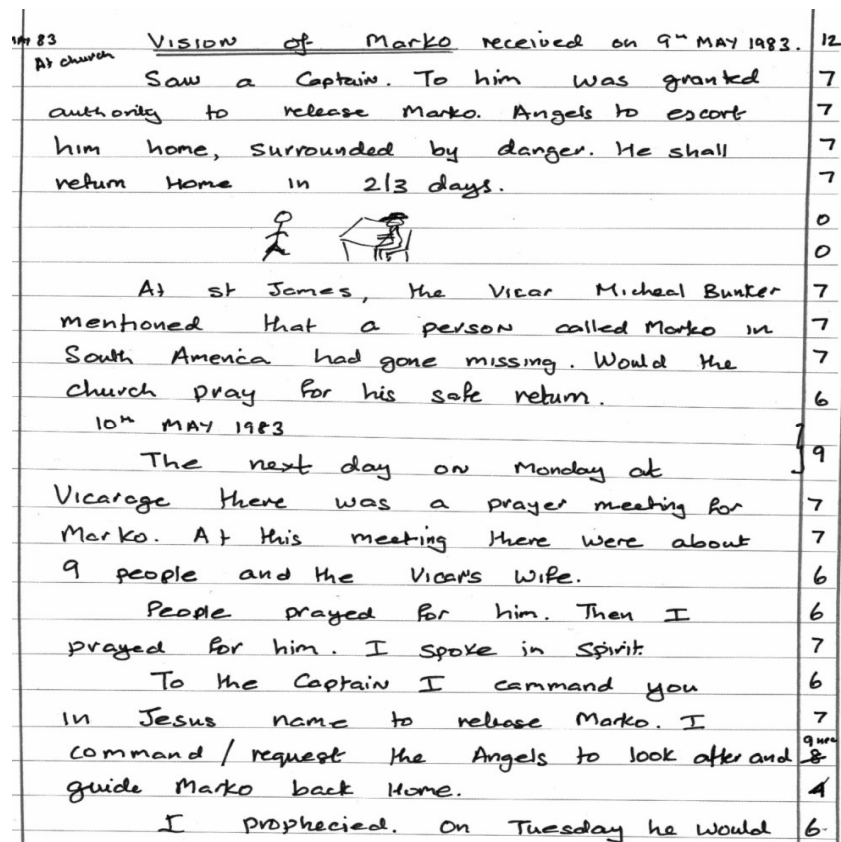 83 Vision of Marko received on 9th MAY 1983. 12
At church
Saw a Captain. To him was granted 7
authority to release Marko. Angels to escort 7
him home, surrounded by danger. He shall 7
return Home in 2/3 days. 7
0
0
At St James, the Vicar Micheal Bunker 7
mentioned that a person called Marko in 7
South America had gone missing. Would the 7
church pray for his safe return. 6
10th MAY 1983
The next day on Monday at 9
Vicarage there was a prayer meeting for 7
Marko. At this meeting there were about 7
9 people and the Vicar's wife. 6
People prayed for him. Then I 6
prayed for him. I spoke in Spirit 7
To the Captain I cammand you 6
in Jesus name to release Marko. I 7
command / request the Angels to look after and 8
guide Marko back Home. 4
I prophecied. On Tuesday he would 6